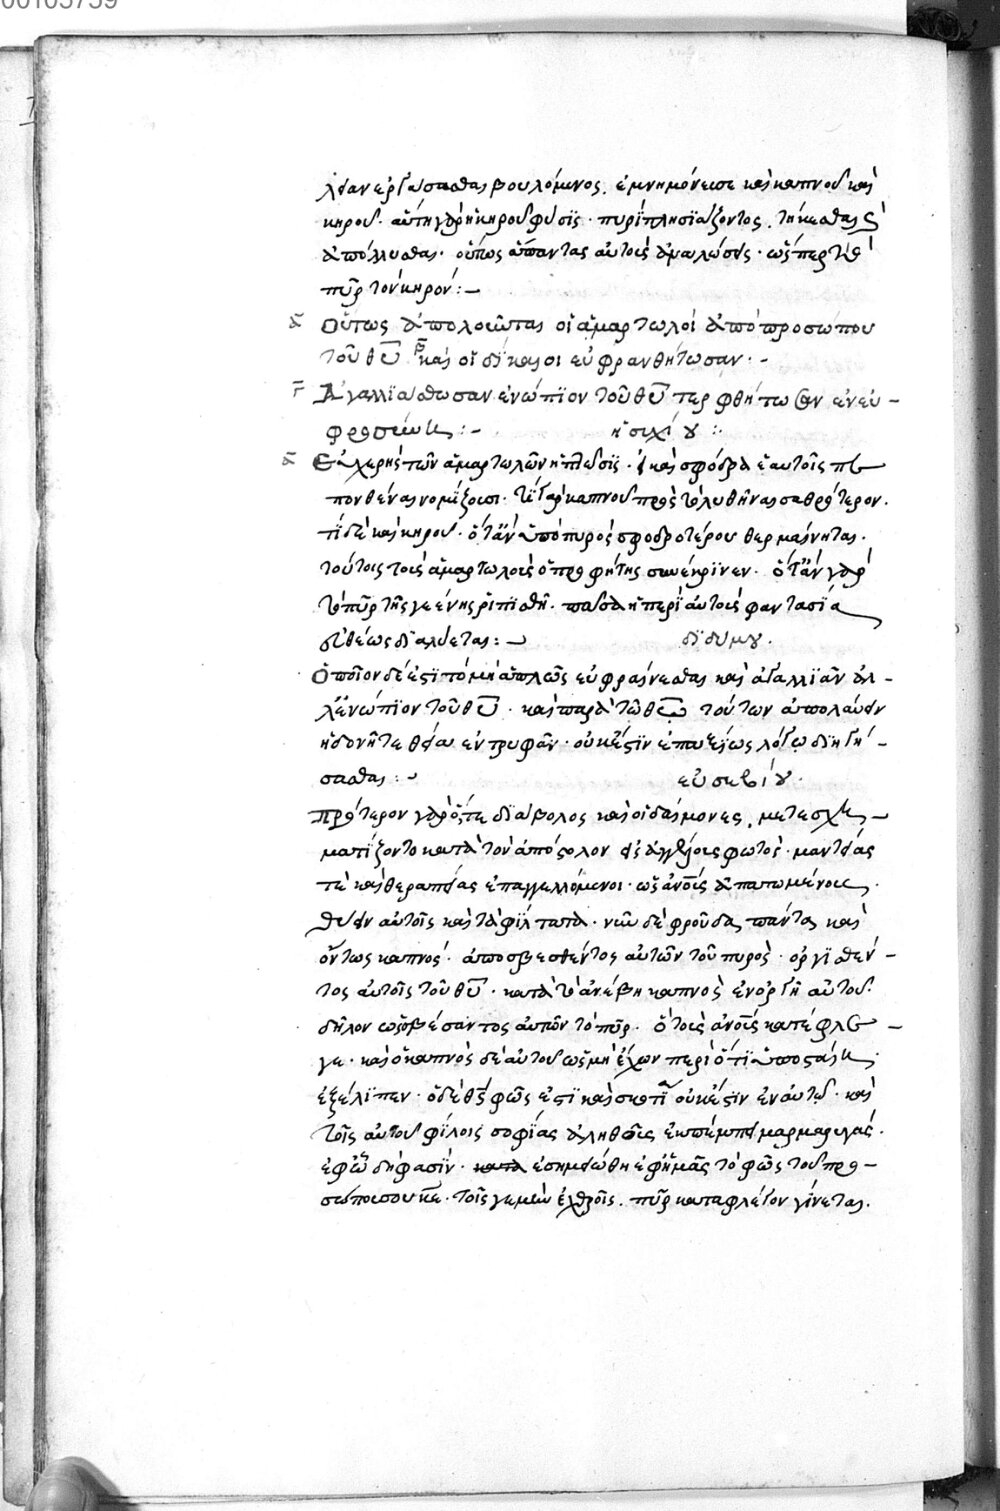 00105759
λειαν ἐργάσασθαι βουλόμενος. ἐμνημόνευσε καὶ καπνοῦ καὶ
κηροῦ. αὕτη γὰρ ἡ κηροῦ φύσϊς. πυρὶ πλησϊάζοντος. τήκεσθαι καὶ
ἀπόλλυσθαι. οὕτως ἅπαντας αὐτοὺς ὥσπερ τὸ
πῦρ τὸν κηρόν:-
α Οὕτως ἀπολοῦνται οἱ ἁμαρτωλοὶ ἀπὸ προσώπου
τοῦ θυ β καὶ οἱ δίκαιοι εὐφρανθήτωσαν.-
γ Ἀγαλλϊάσθωσαν ἐνώπϊον τοῦ θυ τερφθήτωσαν ἐν εὐ-
φροσύνη:- ἡσιχίου:
α Εὐχερὴς τῶν ἁμαρτωλῶν ἡ πτῶσϊς. καὶ σφόδρα ἑαυτοῖς πε
πονθέναι νομίζουσι. τί γὰρ καπνοῦ πρὸς τὸ λυθῆναι σαθρότερον.
τί δὲ καὶ κηροῦ. ὅταν ὑπὸ πυρὸς σφοδροτέρου θερμαίνηται.
τούτοις τοὺς ἁμαρτωλοὺς ὁ προφήτης συνέκρϊνεν. ὅταν γὰρ
τὸ πῦρ τῆς γεέννης ῥιπϊσθῆ. πᾶσα ἡ περὶ αὐτοὺς φαντασΐα
εὐθέως διαλύεται:- διδύμου.
Ὁποῖον δέ ἐστϊ τὸ μὴ ἁπλῶς εὐφραίνεσθαι καὶ ἀγαλλϊᾶν ἀλ-
λ' ἐνώπϊον τοῦ θυ. καὶ παρὰ τῶ θω τούτων ἀπολαύειν
ἡδονῆ τε θεία ἐντρυφᾶν. οὐκ ἔστϊν ἐπαξίως λόγω διηγή-
σασθαι:- εὐσεβίου.
Πρότερον γὰρ ὅ,τε διάβολος καὶ οἱ δαίμονες, μετεσχη-
ματίζοντο κατὰ τὸν ἀπόστολον εἰς ἀγγέλους φωτός. μαντείας
τὲ καὶ θεραπείας ἐπαγγελλόμενοι. ὡς ἀνους ἀπατωμένους.
θύειν αὐτοῖς καὶ τὰ φίλτατα. νῦν δὲ φροῦδα πάντα καὶ
ὄντως καπνός. ἀποσβεσθέντος αὐτῶν τοῦ πυρός. ὀργϊσθέν-
τος αὐτοῖς τοῦ θυ. κατὰ τὸ ἀνέβη καπνὸς ἐν ὀργῆ αὐτοῦ.
δῆλον ὡς σβέσαντος αὐτῶν τὸ πῦρ. ὃ τοὺς ἀνους κατέφλε-
γε. καὶ ὁ καπνὸς δὲ αὐτοῦ ὡς μὴ ἔχων περὶ ὅ τι ὑποστάιη.
ἐξέλϊπεν. ὁ δὲ θς φῶς ἐστϊ καὶ σκοτία οὐκ ἔστϊν ἐν αὐτῶ. καὶ
τοῖς αὐτοῦ φίλοις σοφίας ἀληθοῦς ἐκπέμπει μαρμαρυγάς.
ἐφ' ὧ δή φασϊν. ἐσημειώθη ἐφ' ἡμᾶς τὸ φῶς τοῦ προ-
σώπου σου κε. τοῖς γε μὴν ἐχθροῖς. πῦρ καταφλέγον γίνεται.